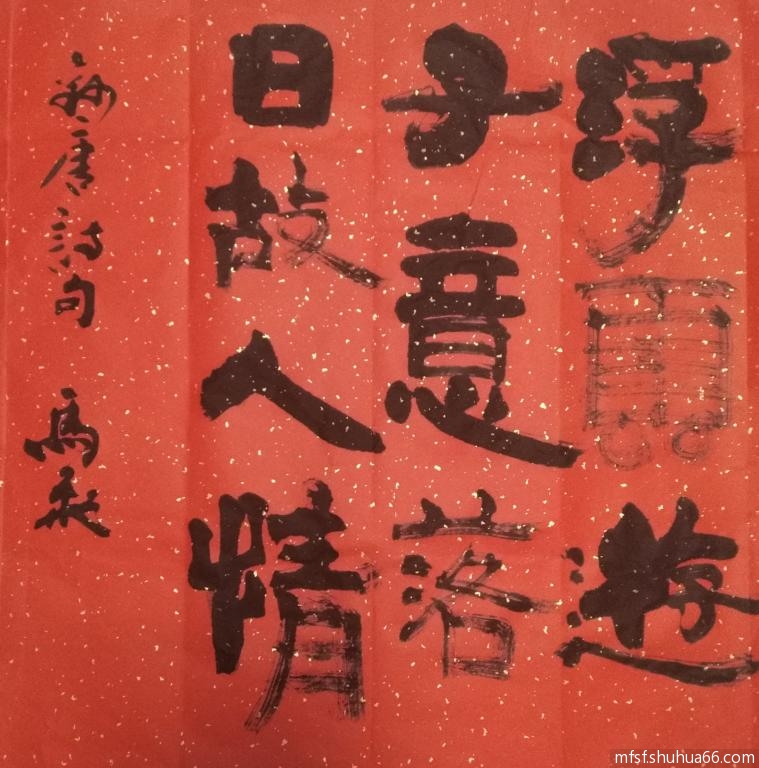 浮雲遊
子意落
日故人情
唐詩句 馬
mfsf.shuhua66.com